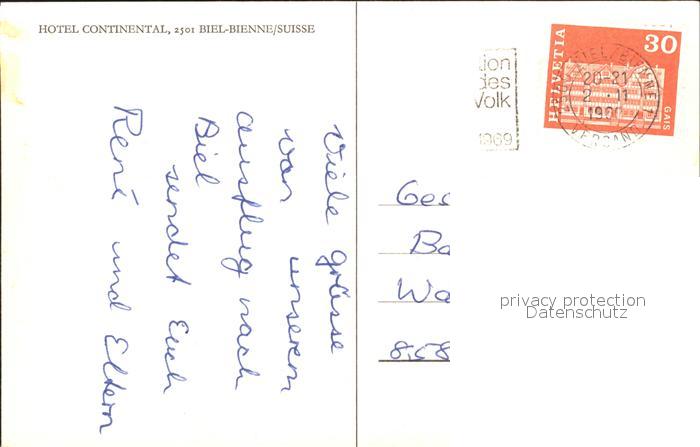 HOTEL CONTINENTAL, 2501 BIEL-BIENNE/SUISSE
Viele grüsse
von unserem
ausflug nach
Biel
sendet Euch
René und Eltern
tion
des
Volk
1969
BIEL/BIENNE
20-21
2.11
VERSAND
HELVETIA
30
GAIS
Geo
Ba
Wa
858
privacy protection
Datenschutz